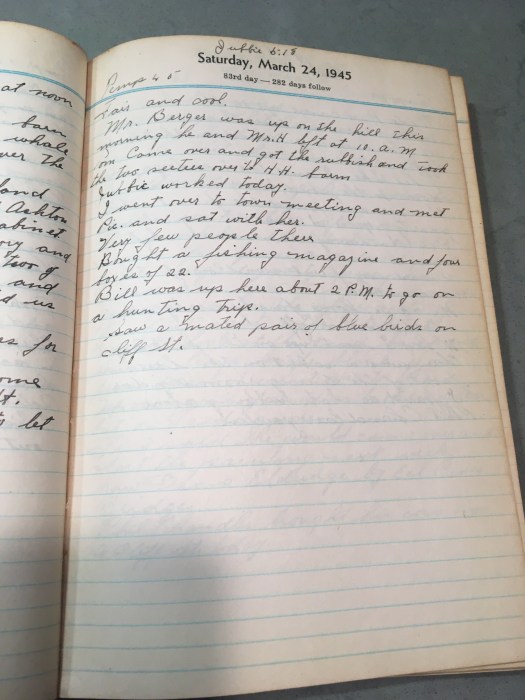 at noon
barn
whale
over the
land
Ashton
abinet
ory and
two of
and
d us
s for
ome
t.
s let
Jubbie 5:15
Saturday, March 24, 1945
83rd day — 282 days follow
Temp 45
Fair and cool.
Mr. Berger was up on the hill this
morning he and Mr. H left at 10. a. m
om Came over and got the rubbish and took
the two over to H H. barn
Jubbie worked today.
I went over to town meeting and met
Pic. and sat with her.
Very few people there
Bought a fishing magazine and four
boxes of 22.
Bill was up here about 2 P.M. to go on
a hunting trip.
Saw a mated pair of blue birds on
cliff St.